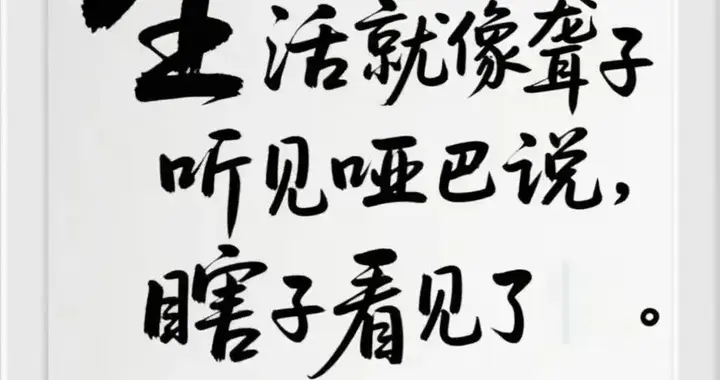 生活就像聋子
听见哑巴说，
瞎子看见了 。